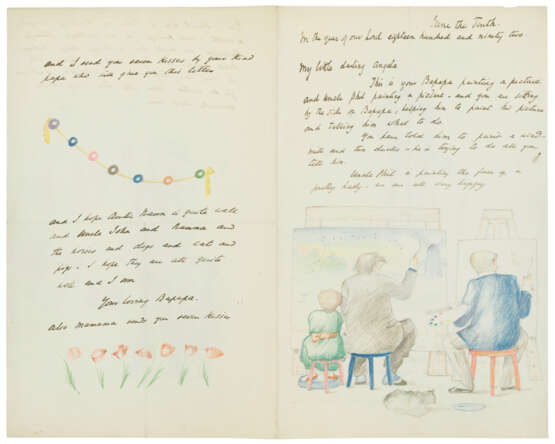 June the Tenth.
In the year of our Lord eighteen hundred and ninety two
My little darling Angela
This is your Bapapa painting a picture
and Uncle Phil painting a picture - and you are sitting
by the side of Bapapa, helping him to paint his picture
and telling him what to do.
You have told him to paint a wind
mill and two ducks - he is trying to do all you
tell him.
Uncle Phil is painting the face of a
pretty lady - we are all very happy
and I send you seven kisses by your kind
papa who will give you this letter
and I hope Auntie is quite well
and Uncle John and Mamma and
the horses and dogs and cat and
I hope they are all quite
well and I am
Your loving Bapapa.
Also mamama sends you seven kisses